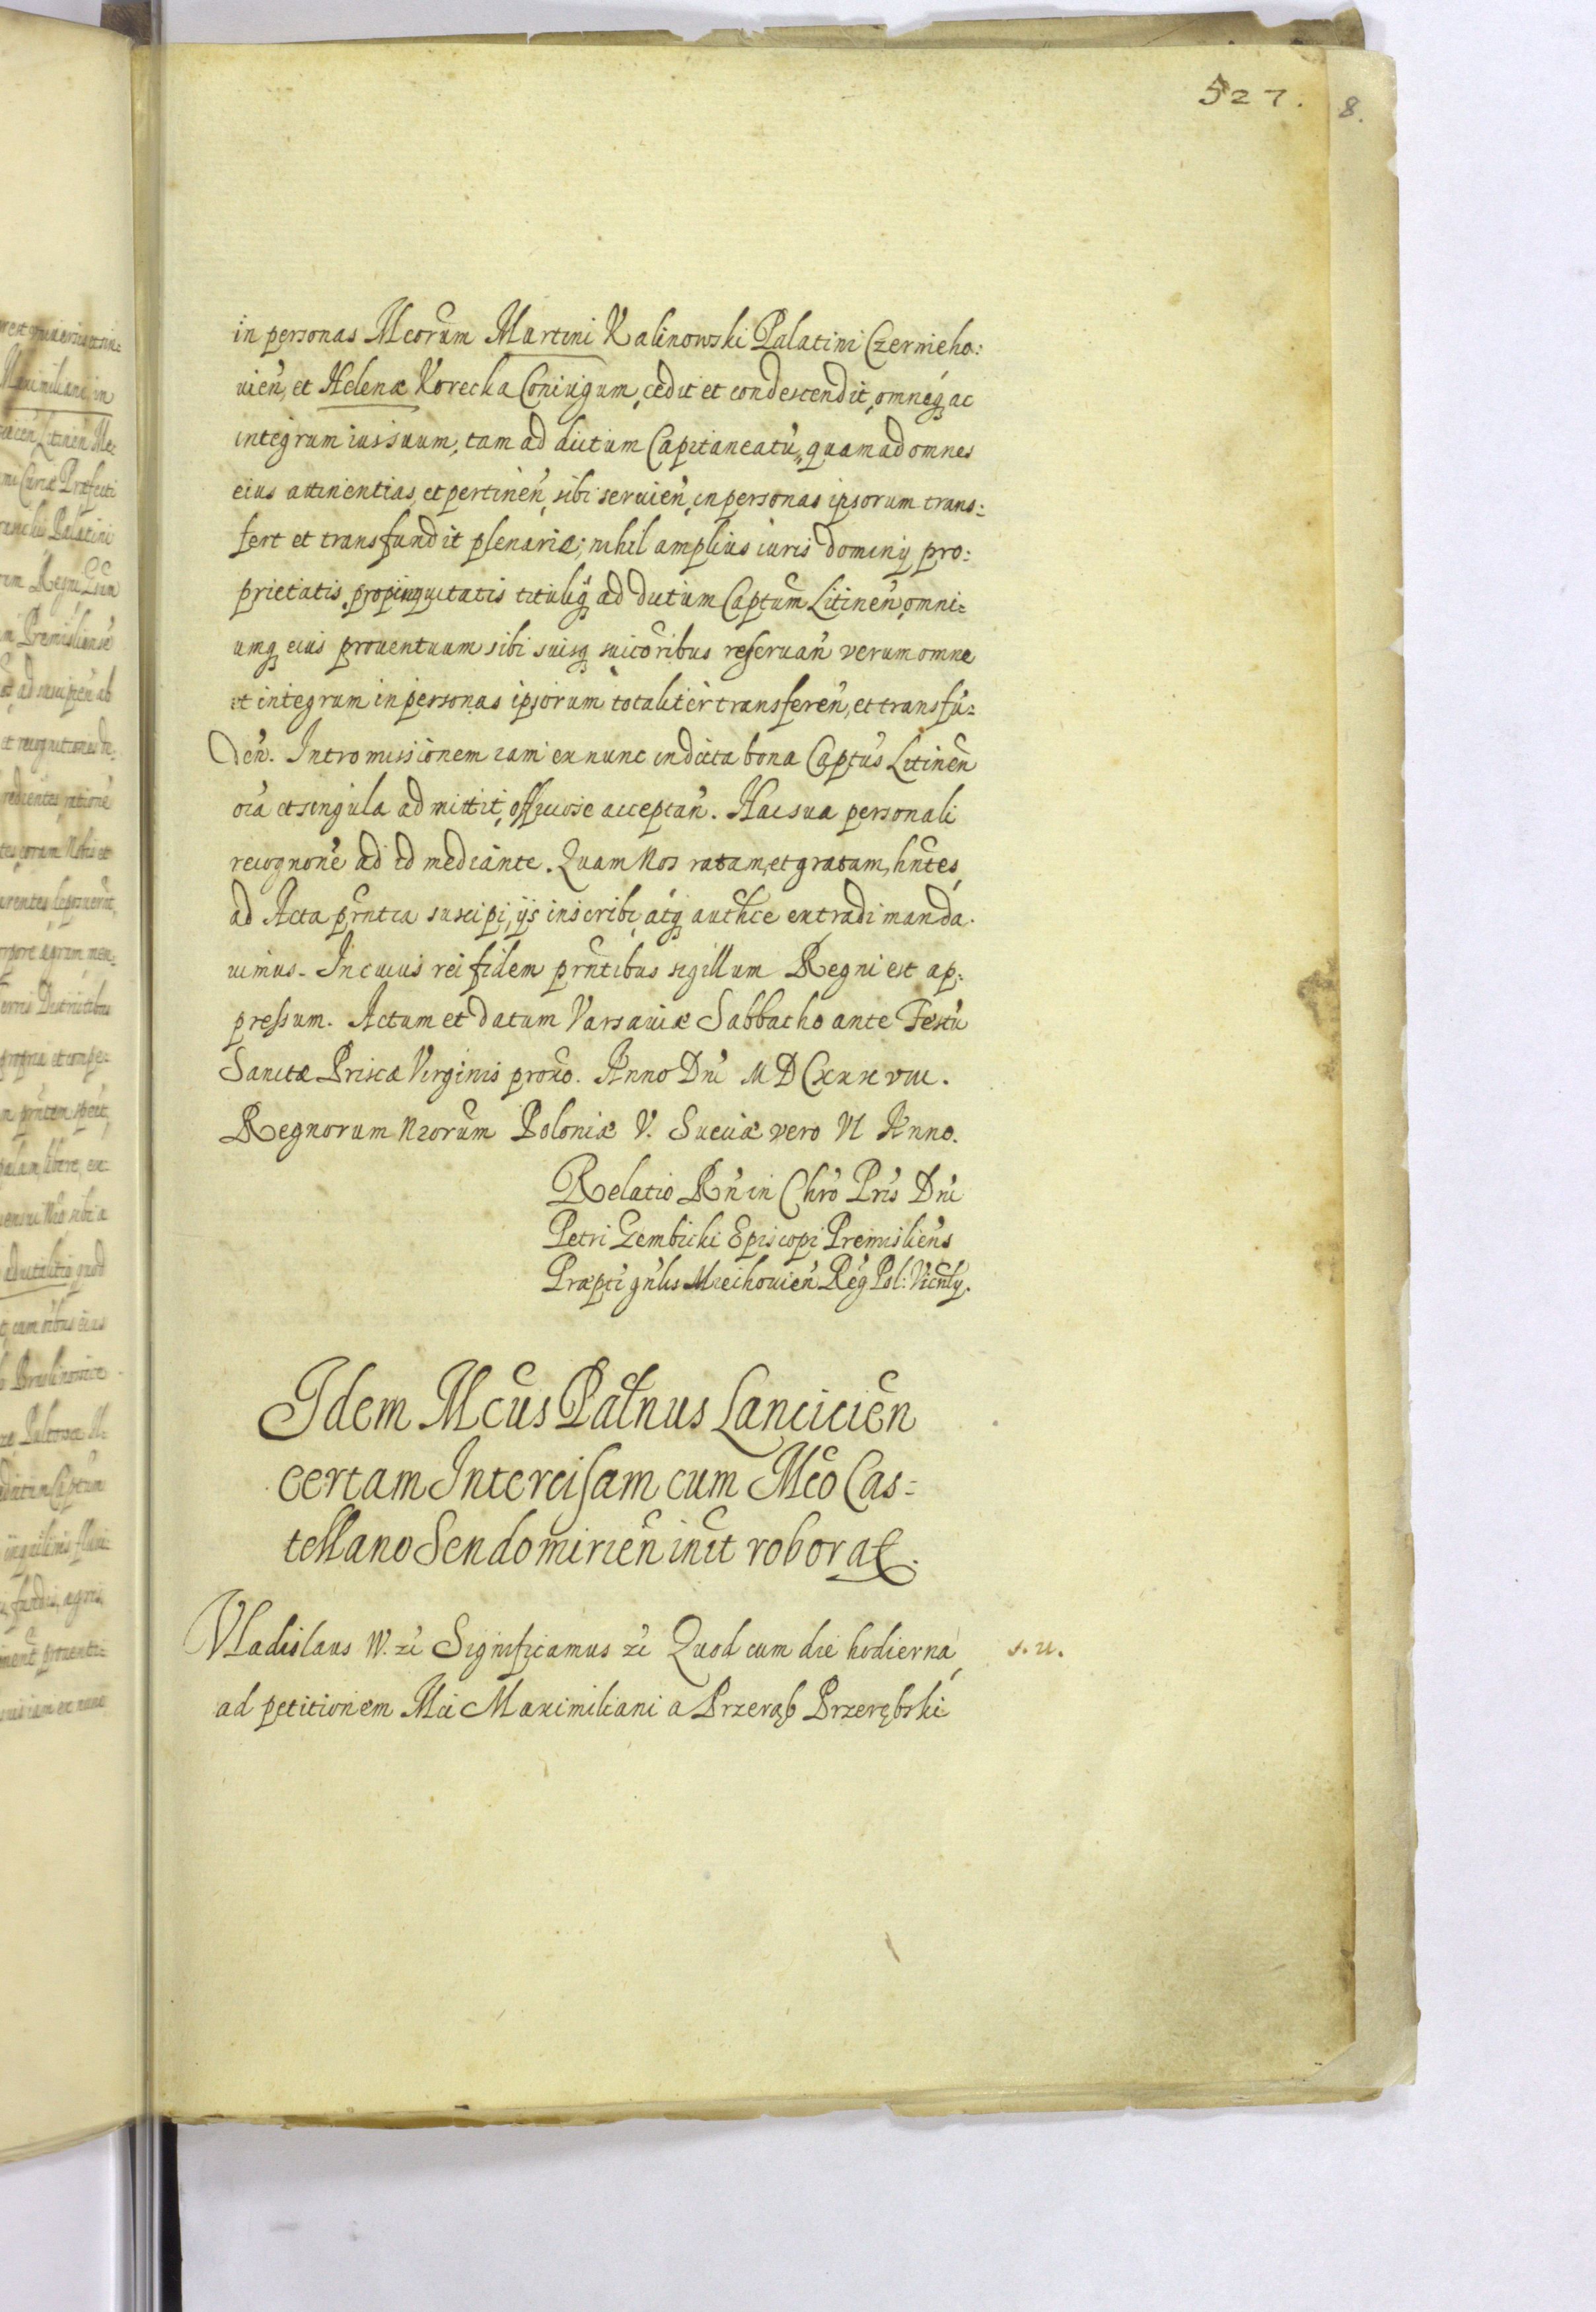 527.
8.
in personas Mcorum Martini Kalinowski Palatini Czernieho:
uien, et Helenæ Korecka Coniugum, cedit et condescendit, omneq, ac
integrum ius suum, tam ad dictum Capitaneatu, quam ad omnes
eius attinentias, et pertinen, sibi seruien, in personas ipsorum trans:
fert et transfundit plenarie; nihil amplius iuris dominij pro:
prietatis, propinquitatis tituliq ad dictum Captum Litinen, omni=
umq eius prouentuum sibi suisq succoribus reseruan verum omne
et integrum in personas ipsorum totaliter transferen, et transfu=
den. Intromissionem iam ex nunc in dicta bona Captus Litinen
oia et singula admittit, officiose acceptan. Hac sua personali
recognone ad id mediante. Quam Nos ratam, et gratam, hntes,
ad Acta prntia suscipi, ijs inscribi, atq authce extradi manda.
uimus. In cuius rei fidem prntibus sigillum Regni est ap:
pressum. Actum et datum Varsauiæ Sabbatho ante Festu
Sanctæ Priscæ Virginis proxo. Anno Dni MDCxxxviii.
Regnorum Nrorum Poloniæ V. Sueciæ vero VI Anno.
Relatio Rn in Chro Pris Dni
Petri Gembicki Episcopi Premisliens
Præpti gnlis Miechouien Reg Pol: Vicncly.
Idem Mcus Palnus Lancicien
certam Intercisam cum Mco Cas=
tellano Sendomirien init roborat.
Vladislaus IV. zc Significamus zc Quod cum die hodierna,
s. u.
ad petitionem Mci Maximiliani a Przerąb Przerębski